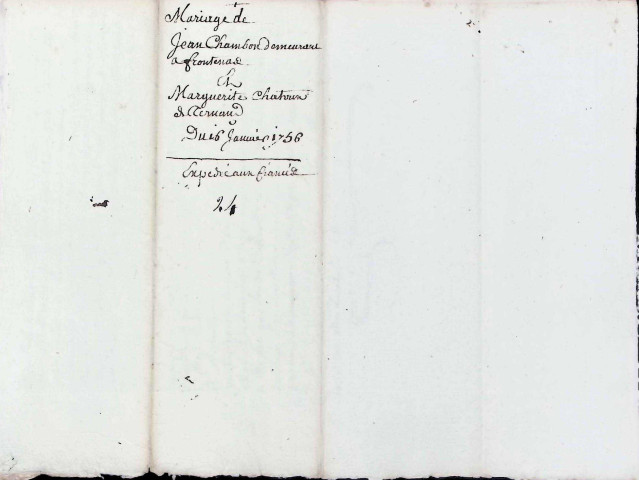 Mariage de
Jean Chambon demeurant
a frontenas
Et
Marguerite Chatoux
de Ternand
Du 16 Janvier 1756
Expedié aux fiancés
24